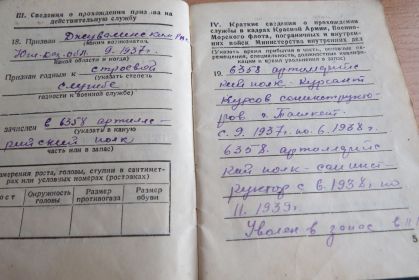 III. Сведения о прохождении призыва на
действительную службу
18. Призван Джувалинским РИ.
(Каким военкоматом,
Юж-каз. обл. 9. 1937 г.
какой области и когда)
Признан годным к строевой
(указать степень
службе
годности к военной службе)
зачислен в 6358 артилле-
(указать в какую
рийский полк
часть или в запас)
змерения роста, головы, ступни в сантимет-
рах или условных номерах (ростовках)
ост
Окружность
головы
Размер
противогаза
Размер
обуви
IV. Краткие сведения о прохождении
службы в кадрах Красной Армии, Военно-
Морского флота, пограничных и внутрен-
них войск Министерства внутренних дел
(Указать время прибытия в часть, основные
19. 6358 артиллерийс
кий полк - Курсант
Курсов санинструкто-
ров г. Ташкент.
с. 9. 1937 г. по. 6. 1938 г.
6358. артиллерийс
кий полк - санинс-
руктор с 6. 1938 г по
11. 1939 г.
Уволен в запас в 11
5